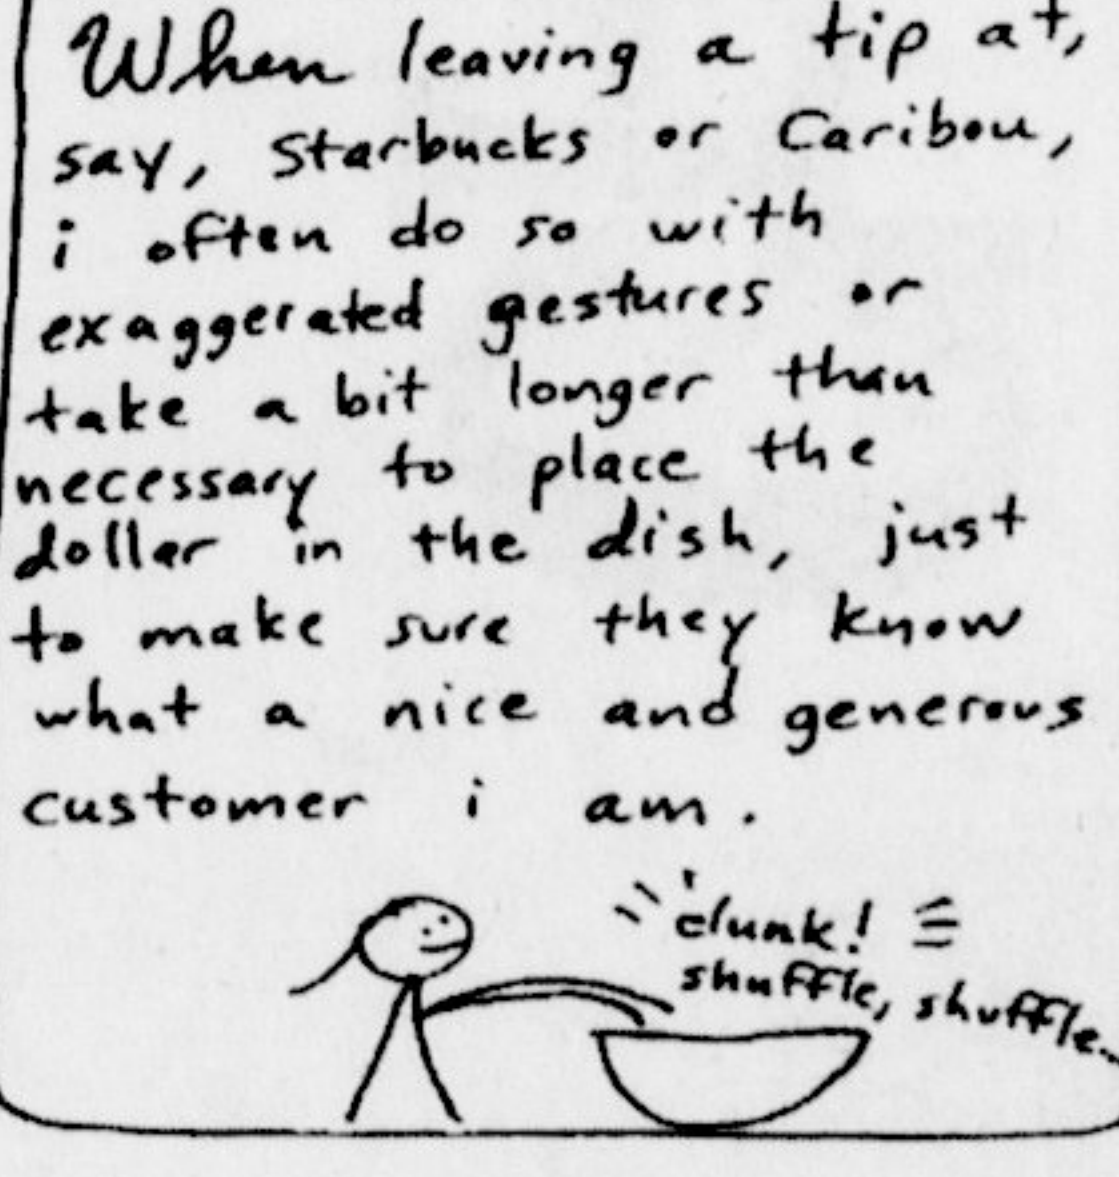 When leaving a tip at,
say, Starbucks or Caribou,
i often do so with
exaggerated gestures or
take a bit longer than
necessary to place the
dollar in the dish, just
to make sure they know
what a nice and generous
customer i am.
clunk!
shuffle, shuffle...